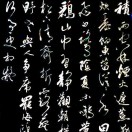 積雨空林煙火遲
蒸藜炊黍餉東菑
漠漠水田飛白鷺
陰陰夏木囀黃
鸝山中習靜觀朝
槿松下清齋折露葵
野老與人爭席罷海鷗
何事更相疑